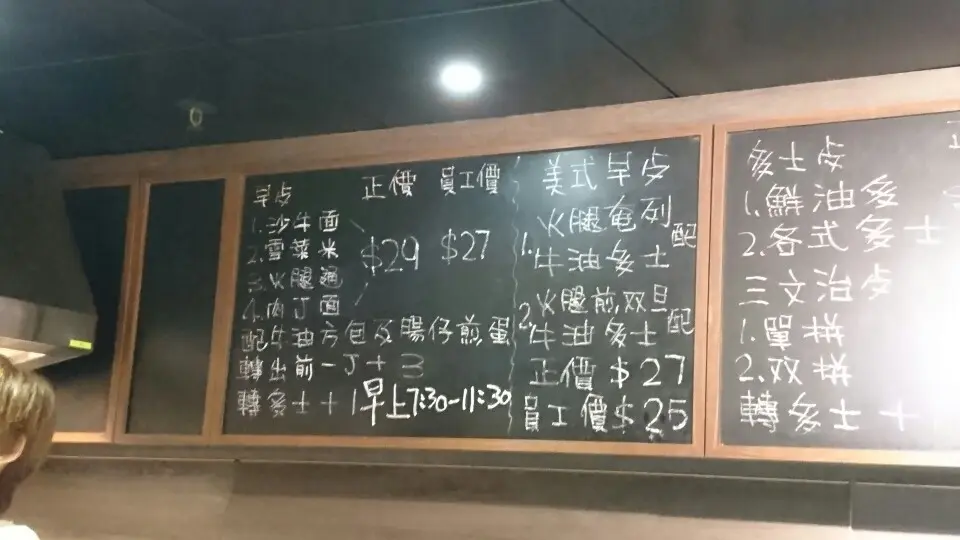 早皮 正價 員工價
1.沙牛面
2.雪菜米 $29 $27
3.火腿通
4.肉丁面
配牛油方包及腸仔煎蛋
轉出前一丁+3
轉多士+1 早上7:30-11:30
美式早皮
1.火腿奄列
牛油多士 配
2.火腿煎双旦
牛油多士 配
正價$27
員工價$25
多士皮
1.鮮油多
2.各式多士
三文治皮
1.單拼
2.双拼
轉多士+